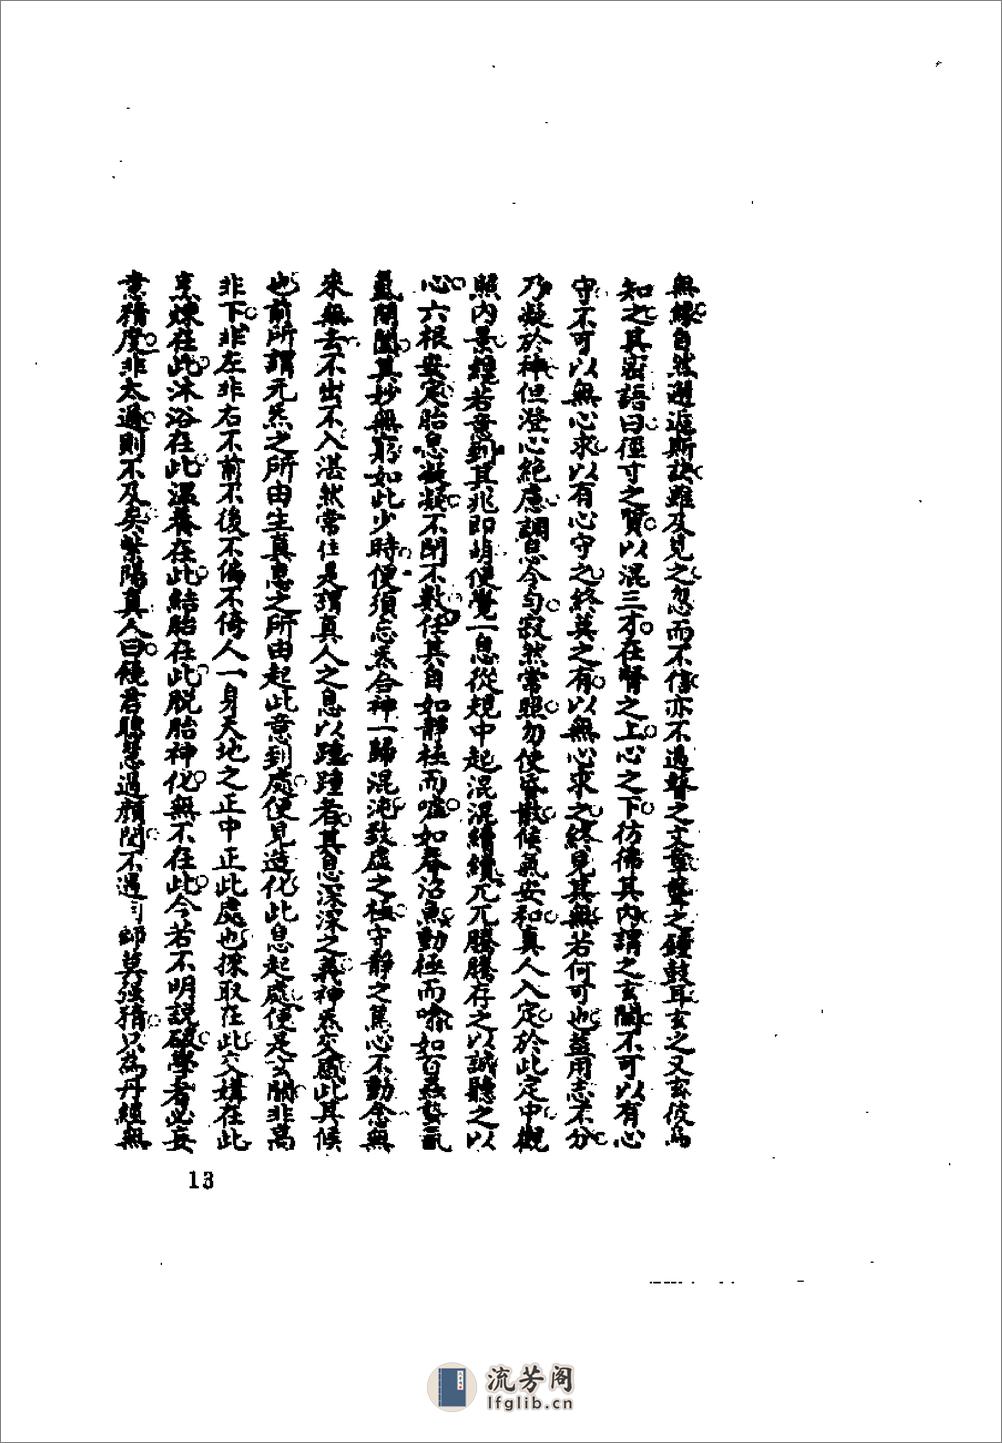 無緣自然邂逅斯訣雖及見之忽而不信亦不過瞽之文章聾之鐘鼓耳玄之又玄彼烏
知之其密語曰徑寸之質以混三才在腎之上心之下彷彿其內謂之玄關不可以有心
守不可以無心求以有心守之終莫之有以無心求之終見其無若何可也蓋用志不分
乃凝於神但澄心絕慮調息令勻寂然常照勿使昏散候氣安和真人入定於此定中觀
照內景纔若意到其兆即萌便覺一息從規中起混混續續兀兀騰騰存之以誠聽之以
心六根安定胎息凝凝不閉不數任其自如靜極而噓如春沼魚動極而噏如百蟲蟄氤
氳開闔其妙無窮如此少時便須忘炁合神一歸混沌致虛之極守靜之篤心不動念無
來無去不出不入湛然常住是謂真人之息以踵踵者其息深深之義神炁交感此其候
也前所謂元炁之所由生真息之所由起此意到處便見造化此息起處便是玄關非高
非下非左非右不前不後不偏不倚人一身天地之正中正此處也採取在此交媾在此
烹煉在此沐浴在此溫養在此結胎在此脫胎神化無不在此今若不明說破學者必妄
意猜度非太過則不及矣紫陽真人曰饒君聰慧過顏閔不遇師莫強猜只為丹經無
13
流芳阁
lfglib.cn